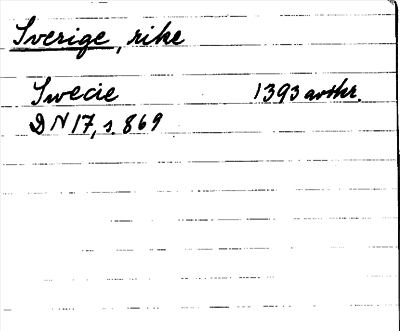 Sverige, rike
Swecie 1393 avskr.
DN 17, s. 869